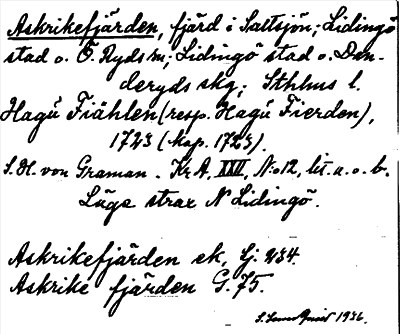 Askrikefjärden, fjärd i Saltsjön; Lidingö
stad o. Ö. Ryds sn; Lidingö stad o. Dan-
deryds skg; Sthlms l.
Hagu Fiählen (resp. Hagu Fierden),
1723 (kop. 1723).
S. H. von Graman. Kr A, XXII, No 12, lit. a. o. b.
Läge strax N Lidingö.
Askrikefjärden ek, Gj. 234.
Askrike fjärden G. 75.
1936.